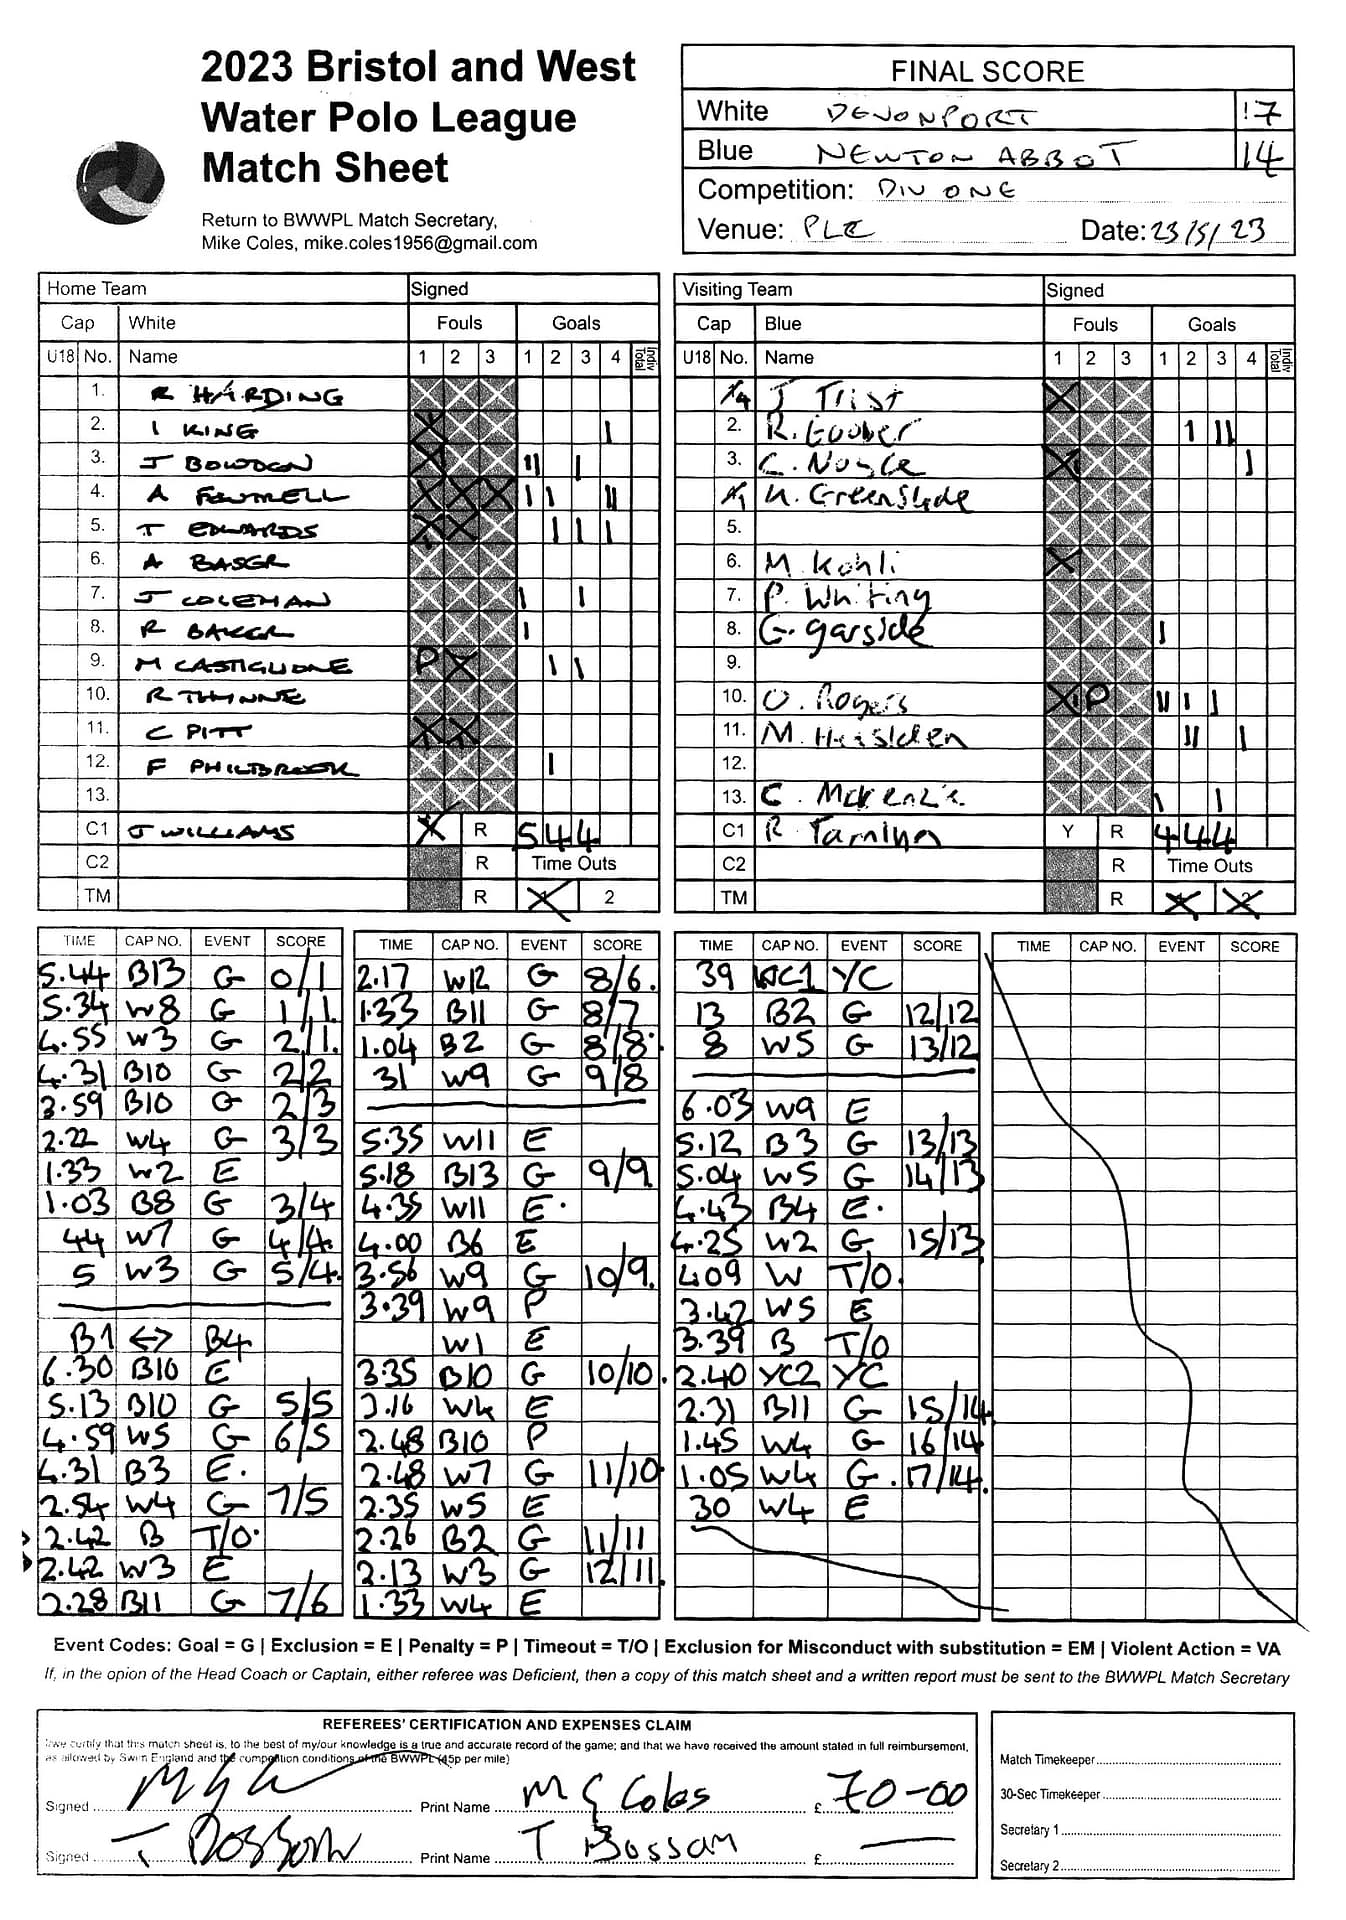 2023 Bristol and West
Water Polo League
Match Sheet
Return to BWWPL Match Secretary,
Mike Coles, mike.coles1956@gmail.com
FINAL SCORE
White DEVONPORT 17
Blue NEWTON ABBOT 14
Competition: DIV ONE
Venue: PLC Date: 23/5/23
Home Team Signed
Cap White Fouls Goals
U18 No. Name 1 2 3 1 2 3 4 Indiv Total
1. R HARDING
2. I KING X I
3. J BOWDEN X II I
4. A X X X I I II
5. T EDWARDS X X I I I
6. A BASER
7. J COLEMAN I I
8. R BAKER I
9. M CASTIGLIONE P X I I
10. R THYNNE
11. C PITT X X
12. F PHILBROOK I
13.
C1 J WILLIAMS X R 5 4 4
C2 R Time Outs
TM R 1 2
Visiting Team Signed
Cap Blue Fouls Goals
U18 No. Name 1 2 3 1 2 3 4 Indiv Total
1/4 J Trist X
2. R. Goober I II
3. C. Noyce X I
4/1 Greenslade
5.
6. M Kohli X
7. P. Whiting
8. G. garside I
9.
10. O. Rogers X P II I I
11. M. II I
12.
13. C. McKenzie I I
C1 R Y R 4 4 4
C2 R Time Outs
TM R 1 2
TIME CAP NO. EVENT SCORE
5.44 B13 G 0/1
5.34 W8 G 1/1
4.55 W3 G 2/1
4.31 B10 G 2/2
3.59 B10 G 2/3
2.22 W4 G 3/3
1.33 W2 E
1.03 B8 G 3/4
44 W7 G 4/4
5 W3 G 5/4
B1 <-> B4
6.30 B10 E
5.13 B10 G 5/5
4.59 W5 G 6/5
4.31 B3 E.
2.54 W4 G 7/5
2.42 B T/O
2.42 W3 E
2.28 B11 G 7/6
TIME CAP NO. EVENT SCORE
2.17 W12 G 8/6.
1.33 B11 G 8/7
1.04 B2 G 8/8
31 W9 G 9/8
5.35 W11 E
5.18 B13 G 9/9
4.35 W11 E.
4.00 B6 E
3.56 W9 G 10/9.
3.39 W9 P
W1 E
3.35 B10 G 10/10.
3.16 W4 E
2.48 B10 P
2.48 W7 G 11/10
2.35 W5 E
2.26 B2 G 11/11
2.13 W3 G 12/11.
1.33 W4 E
TIME CAP NO. EVENT SCORE
39 WC1 YC
13 B2 G 12/12
8 W5 G 13/12
6.03 W9 E
5.12 B3 G 13/13
5.04 W5 G 14/13
4.43 B4 E.
4.25 W2 G 15/13
4.09 W T/O.
3.42 W5 E
3.39 B T/O
2.40 YC2 YC
2.31 B11 G 15/14
1.45 W4 G 16/14
1.05 W4 G. 17/14.
30 W4 E
TIME CAP NO. EVENT SCORE
Event Codes: Goal = G | Exclusion = E | Penalty = P | Timeout = T/O | Exclusion for Misconduct with substitution = EM | Violent Action = VA
If, in the opion of the Head Coach or Captain, either referee was Deficient, then a copy of this match sheet and a written report must be sent to the BWWPL Match Secretary
REFEREES' CERTIFICATION AND EXPENSES CLAIM
I/we certify that this match sheet is, to the best of my/our knowledge is a true and accurate record of the game; and that we have received the amount stated in full reimbursement,
as allowed by Swim England and the competition conditions of the BWWPL (45p per mile)
Signed Print Name M G Coles £ 70-00
Signed T Bossom Print Name T Bossom £ —
Match Timekeeper
30-Sec Timekeeper
Secretary 1
Secretary 2